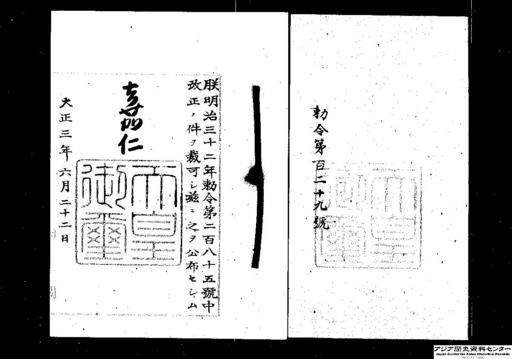 勅令第百二十九號
朕明治三十二年勅令第二百八十五號中
改正ノ件ヲ裁可シ茲ニ之ヲ公布セシム
嘉仁
天皇
御璽
大正三年六月二十二日
アジア歴史資料センター
Japan Center for Asian Historical Records